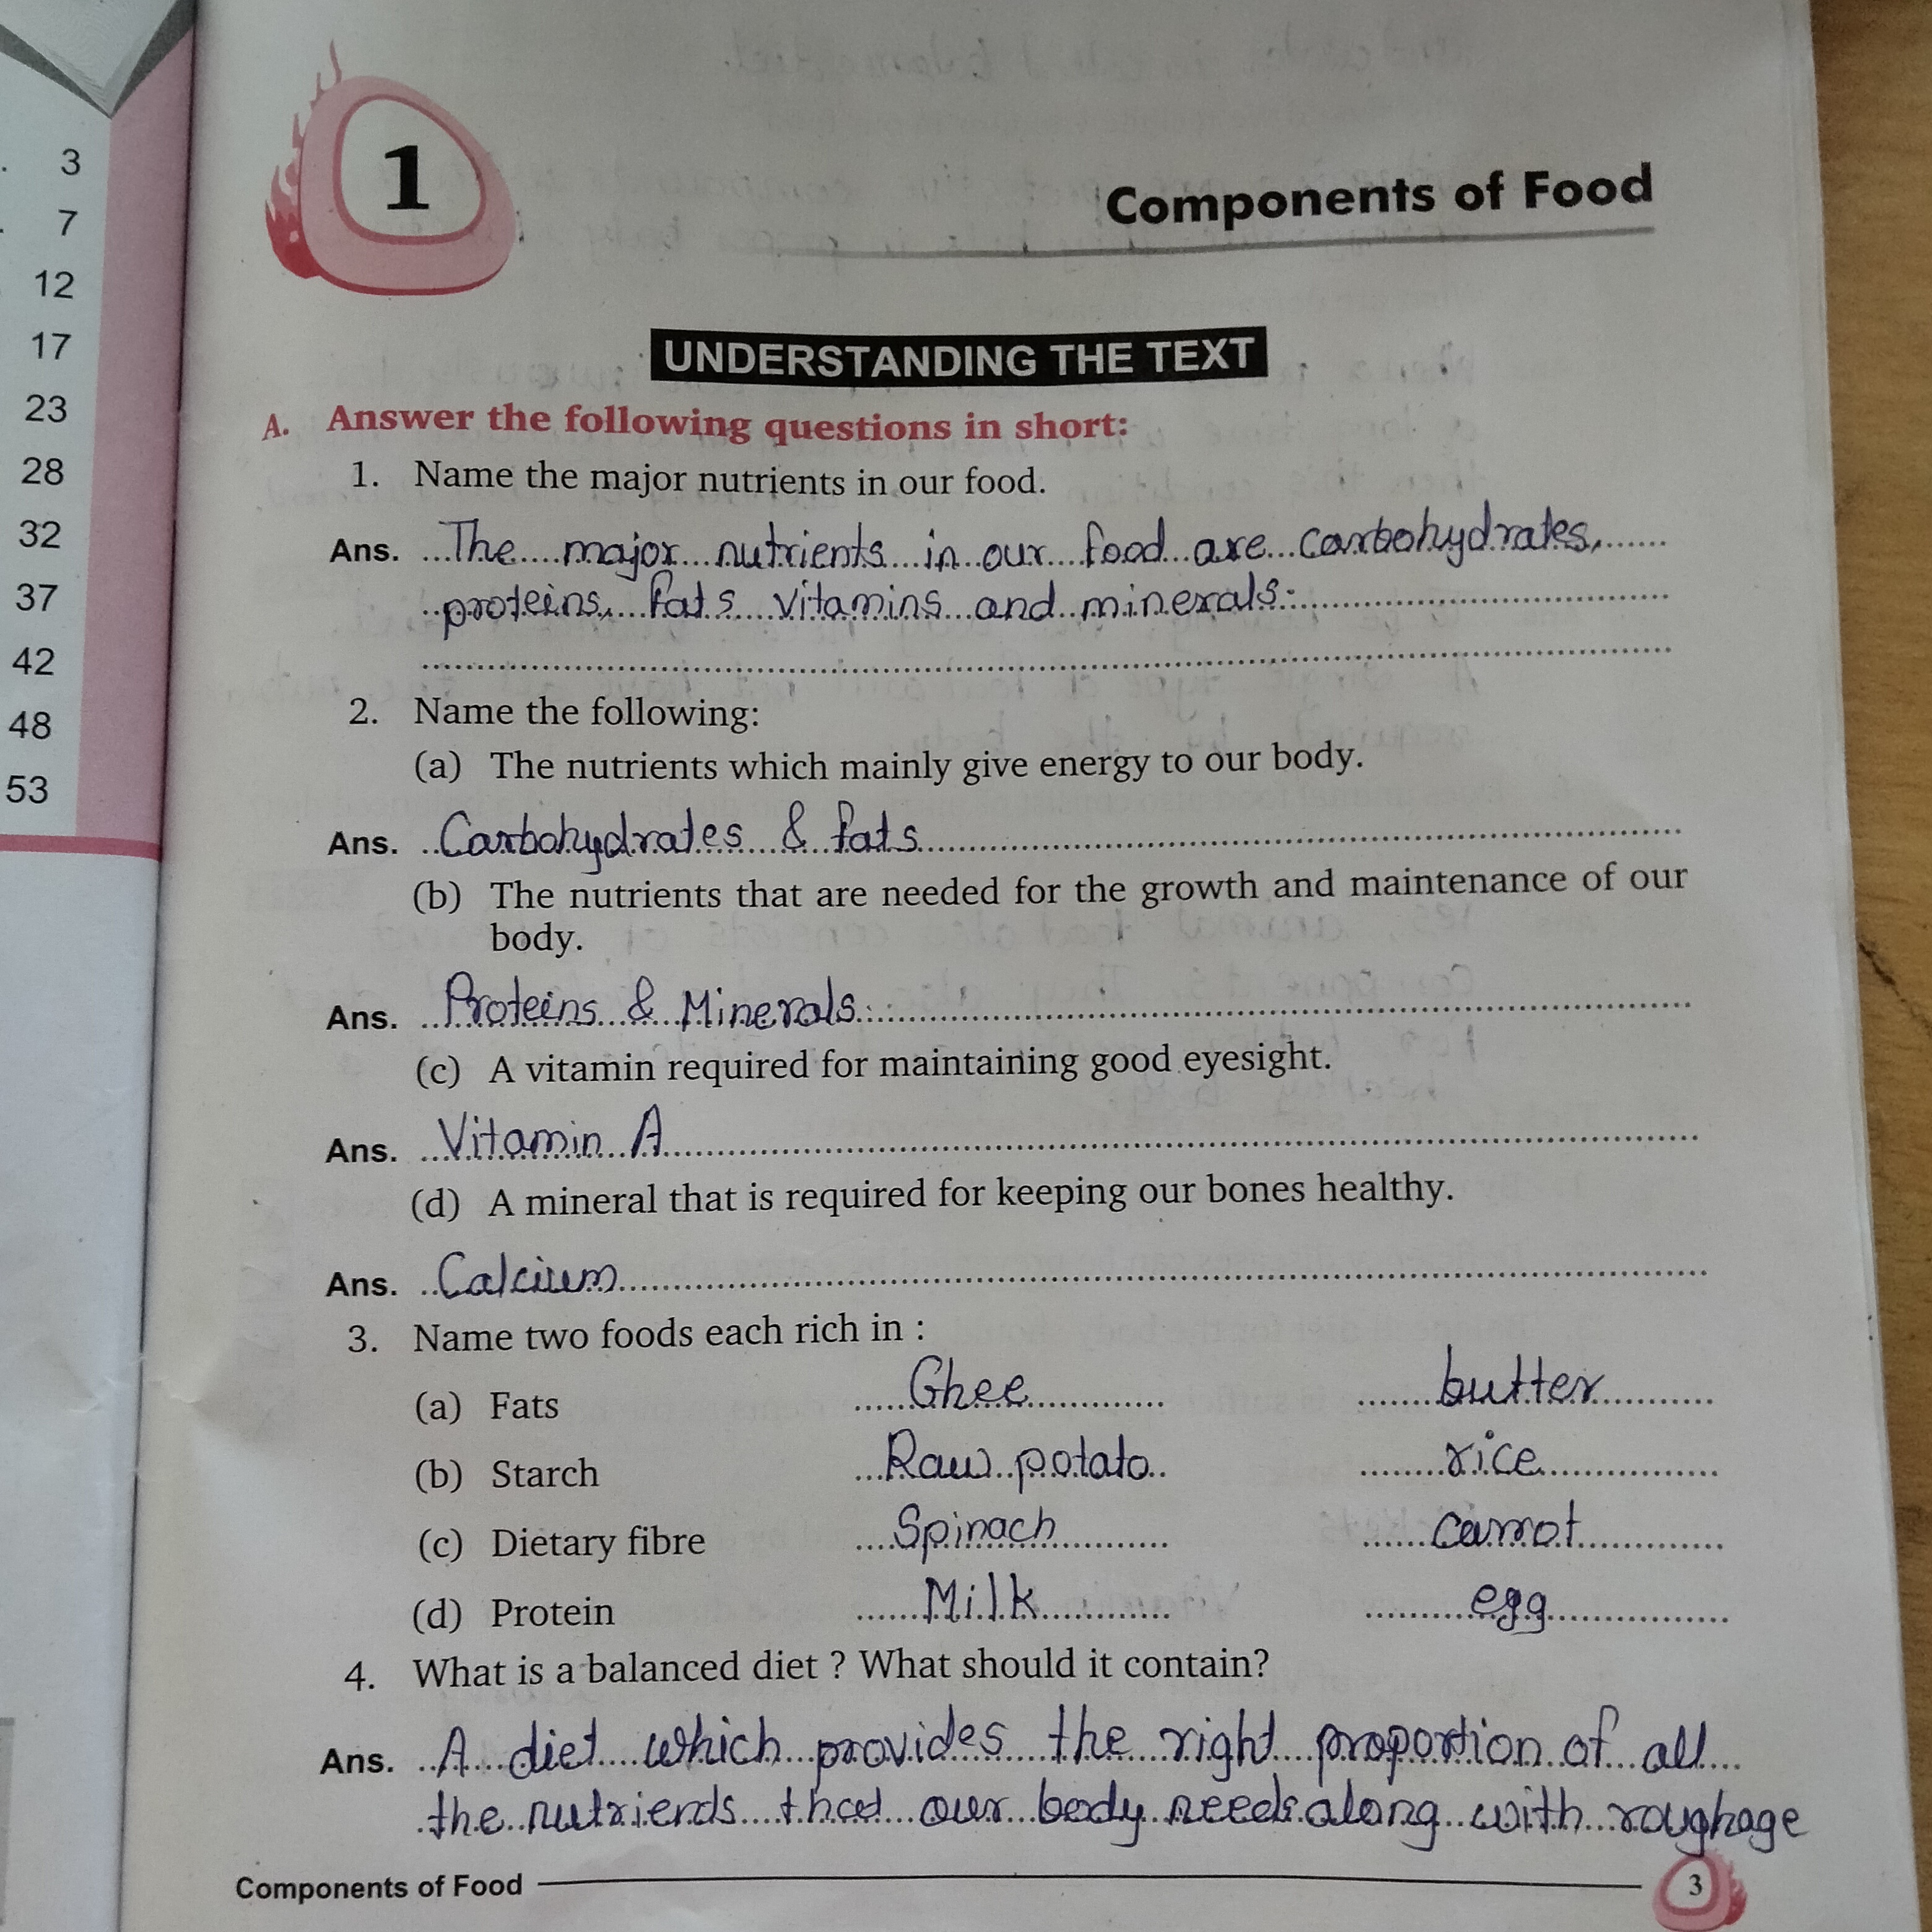 3
7
12
17
23
28
32
37
42
48
53
1
Components of Food
UNDERSTANDING THE TEXT
A. Answer the following questions in short:
1. Name the major nutrients in our food.
Ans. The major nutrients in our food are carbohydrates,
proteins, fats vitamins and minerals.
2. Name the following:
(a) The nutrients which mainly give energy to our body.
Ans. Carbohydrates & fats
(b) The nutrients that are needed for the growth and maintenance of our
body.
Ans. Proteins & Minerals.
(c) A vitamin required for maintaining good eyesight.
Ans. Vitamin A
(d) A mineral that is required for keeping our bones healthy.
Ans. Calcium
3. Name two foods each rich in :
(a) Fats Ghee butter
(b) Starch Raw potato rice
(c) Dietary fibre Spinach carrot
(d) Protein Milk egg
4. What is a balanced diet ? What should it contain?
Ans. A diet which provides the right proportion of all
the nutriends that our body needs along with roughage
Components of Food 3